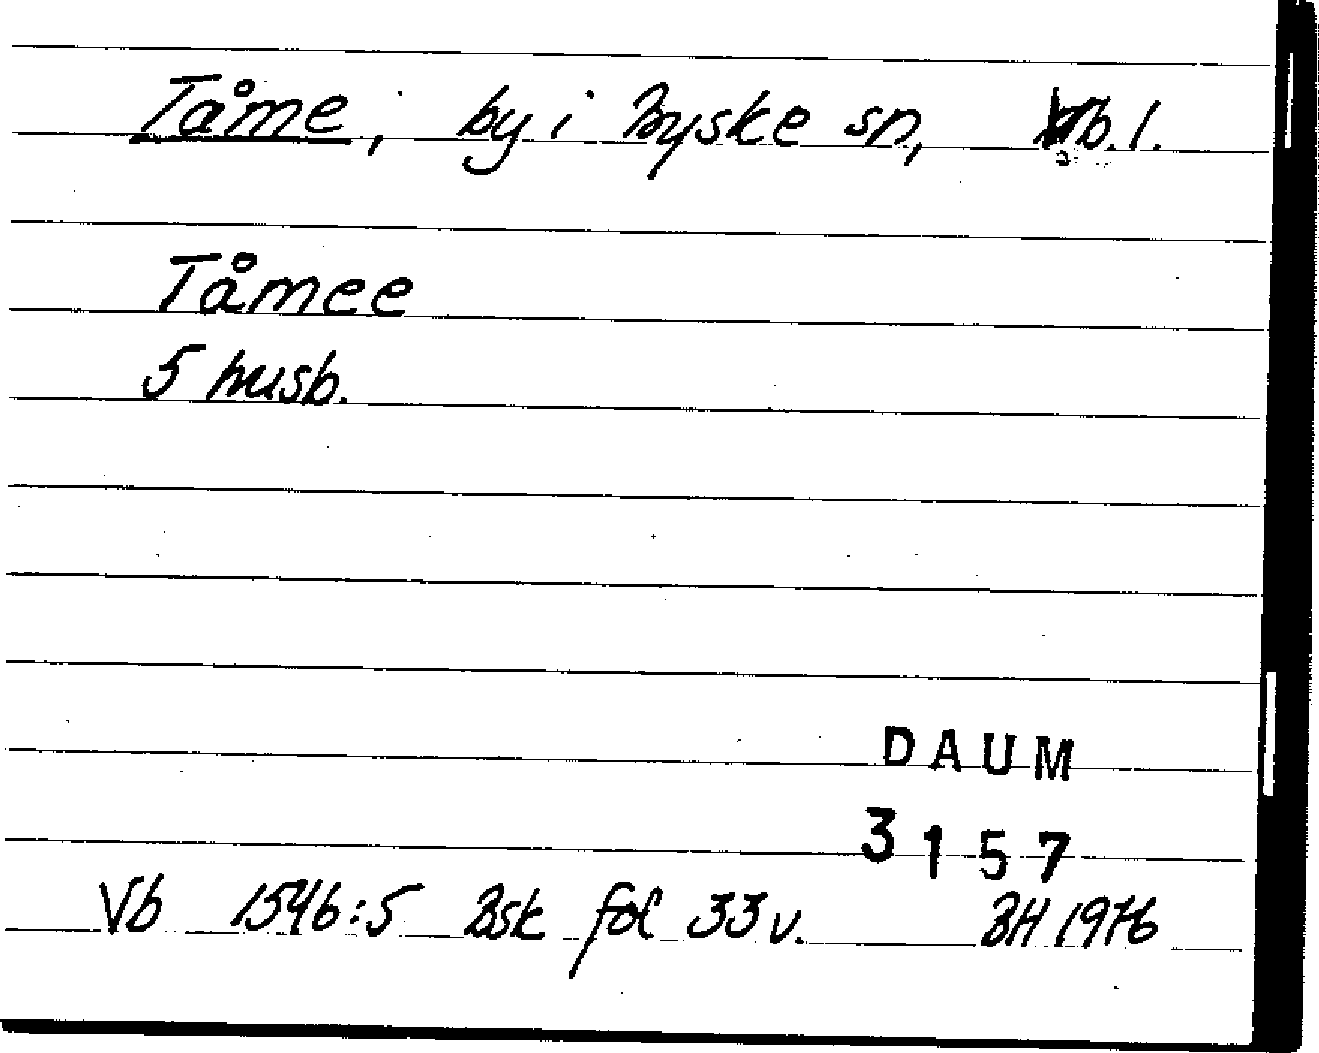 Tåme, by i Byske sn, Vb. l.
Tåmee
5 husb.
DAUM
3157
Vb 1546:5 Bsk fol 33 v. BH 1976